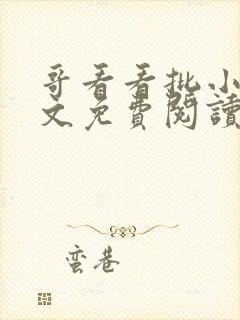 哥看看批小
文免費閱讀
蛮巷